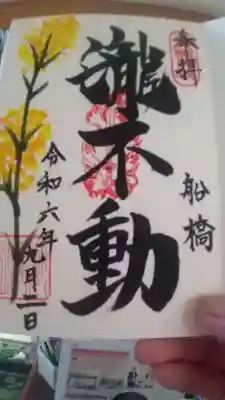 奉拝
船橋
瀧不動
令和六年
九月二日